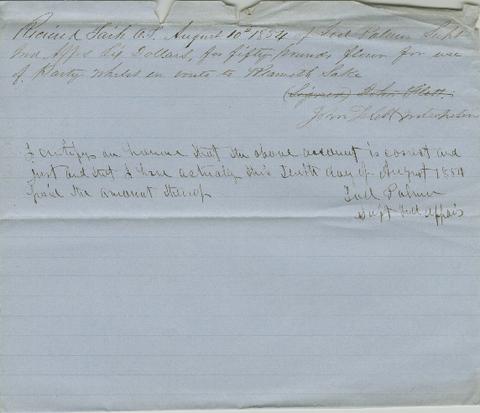 Recieved Jack O.T. August 10th 1854 of Joel Palmer Supt
Ind. Affrs Six Dollars, for fifty pounds flour for use
of Party whilst en route to Klamath Lake
(Signed) John Flett.
John Flett
I certify on honour that the above account is correct and
just and that I have actually this Tenth day of August 1854
paid the amount thereof
Joel Palmer
Supt Ind Affairs